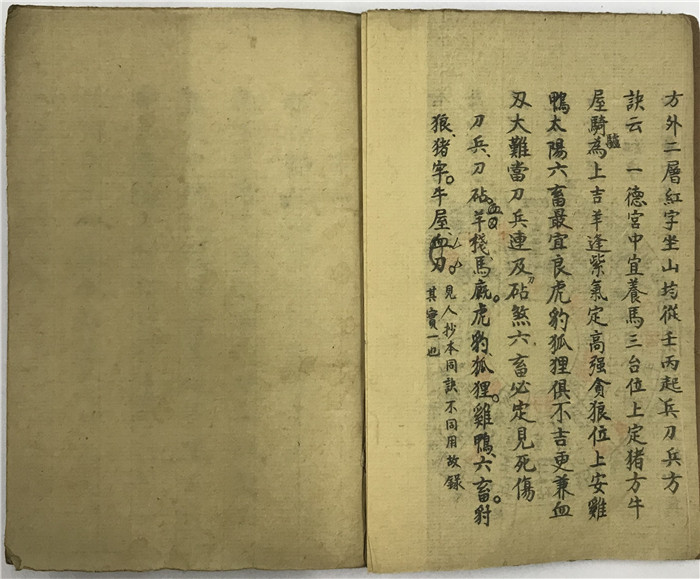 方外二層紅字坐山均從壬丙起兵刀兵方
訣云　一德宮中宜養馬三台位上定猪方牛
屋騎驢為上吉羊逢紫氣定高强貪狼位上安雞
鴨太陽六畜最宜良虎豹狐狸俱不吉更兼血
刃大難當刀兵連及砧煞六畜必定見死傷
刀兵、刀砧。羊棧、馬廐。虎豹、狐狸。雞鴨、六畜。豺
狼、猪牢。牛屋、血刃。見人抄本同訣不同用故錄
其實一也